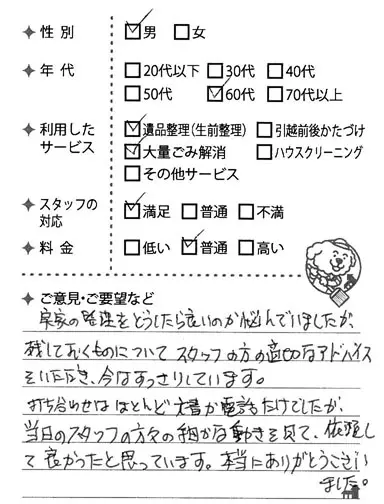 ✦ 性別 ☑男 □女
✦ 年代 □20代以下 □30代 □40代
□50代 ☑60代 □70代以上
✦ 利用したサービス ☑遺品整理(生前整理) □引越前後かたづけ
☑大量ごみ解消 □ハウスクリーニング
□その他サービス
✦ スタッフの対応 ☑満足 □普通 □不満
✦ 料金 □低い ☑普通 □高い
✦ ご意見・ご要望など
実家の整理をどうしたら良いのか悩んでいましたが、
残しておくものについてスタッフの方の適切なアドバイス
をいただき、今はすっきりしています。
打ち合わせはほとんど文書か電話だけでしたが、
当日のスタッフの方々の細かな動きを見て、依頼し
て良かったと思っています。本当にありがとうござい
ました。